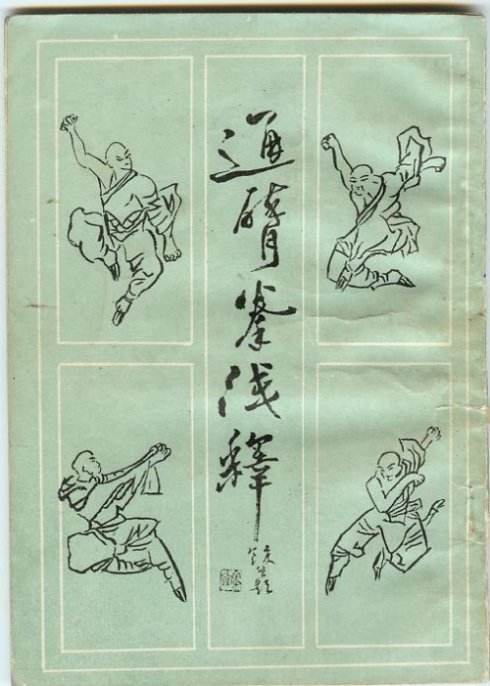 通臂拳浅釋